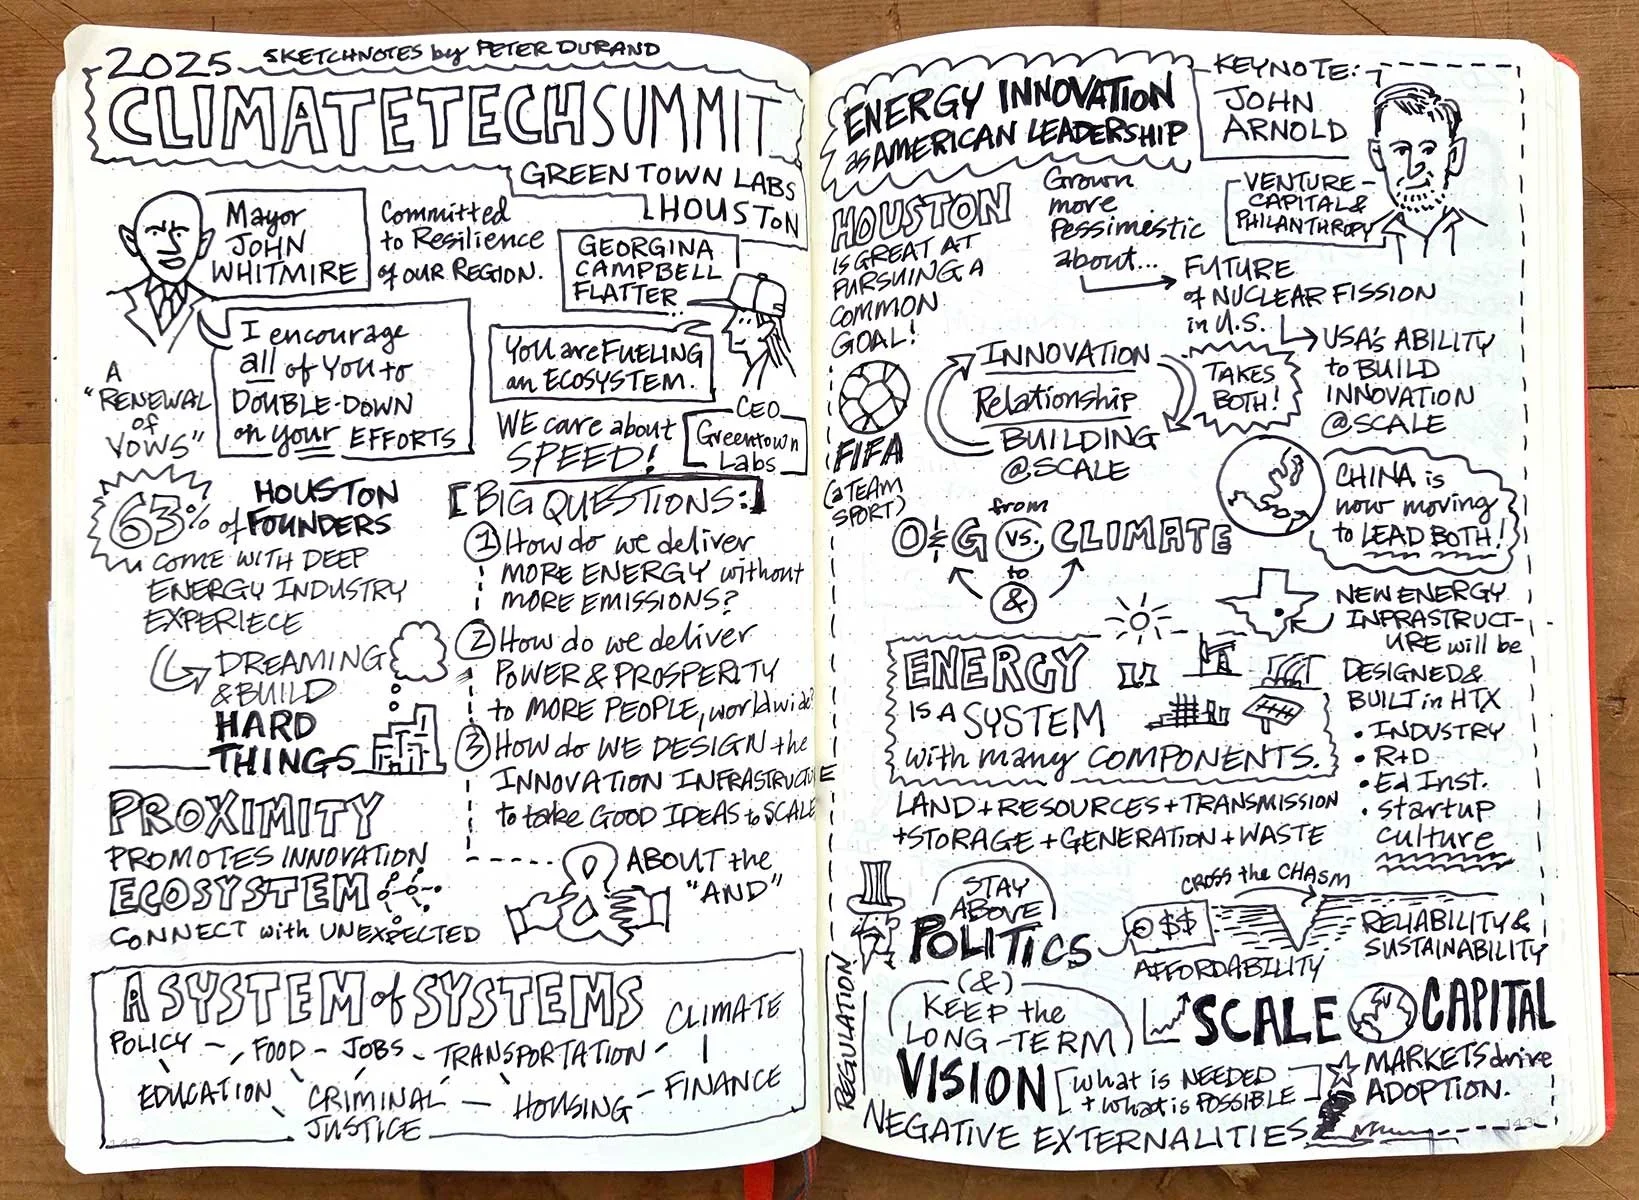 2025 SKETCHNOTES by PETER DURAND
CLIMATETECH SUMMIT
GREENTOWN LABS
HOUSTON
Mayor
JOHN
WHITMIRE
Committed
to Resilience
of OUR REGION.
I encourage
all of YOU to
DOUBLE-DOWN
on your EFFORTS
A
"RENEWAL
of
VOWS"
GEORGINA
CAMPBELL
FLATTER
YOU are FUELING
an ECOSYSTEM.
WE care about
SPEED!
CEO
Greentown
Labs
63% of HOUSTON
FOUNDERS
COME WITH DEEP
ENERGY INDUSTRY
EXPERIECE
DREAMING
& BUILD
HARD
THINGS
BIG QUESTIONS:
1 How do we deliver
MORE ENERGY without
MORE EMISSIONS?
2 How do we deliver
POWER & PROSPERITY
to MORE PEOPLE, worldwide?
3 How do WE DESIGN the
INNOVATION INFRASTRUCTURE
to take GOOD IDEAS to SCALE
?
ABOUT the
"AND"
PROXIMITY
PROMOTES INNOVATION
ECOSYSTEM
CONNECT with UNEXPECTED
A SYSTEM of SYSTEMS
POLICY - FOOD - JOBS - TRANSPORTATION - CLIMATE
EDUCATION - CRIMINAL
JUSTICE - HOUSING - FINANCE
143
ENERGY INNOVATION
as AMERICAN LEADERSHIP
KEYNOTE:
JOHN
ARNOLD
VENTURE
CAPITAL &
PHILANTHROPY
HOUSTON
IS GREAT AT
PURSUING A
COMMON
GOAL!
FIFA
(a TEAM
SPORT)
Grown
more
Pessimestic
about...
FUTURE
of NUCLEAR FISSION
in U.S.
USA's ABILITY
to BUILD
INNOVATION
@SCALE
INNOVATION
Relationship
BUILDING
@SCALE
TAKES
BOTH!
CHINA is
now moving
to LEAD BOTH!
from
O&G vs. CLIMATE
to
&
ENERGY
IS A SYSTEM
with many COMPONENTS.
LAND + RESOURCES + TRANSMISSION
+ STORAGE + GENERATION + WASTE
NEW ENERGY
INFRASTRUCT-
URE will be
DESIGNED &
BUILT in HTX
• INDUSTRY
• R+D
• Ed Inst.
• startup
culture
STAY
ABOVE
POLITICS
(&)
KEEP the
LONG-TERM
VISION
[what is NEEDED
+ what is POSSIBLE]
CROSS the CHASM
$$
AFFORDABILITY
RELIABILITY &
SUSTAINABILITY
SCALE CAPITAL
MARKETS drive
ADOPTION.
REGULATION
NEGATIVE EXTERNALITIES
143